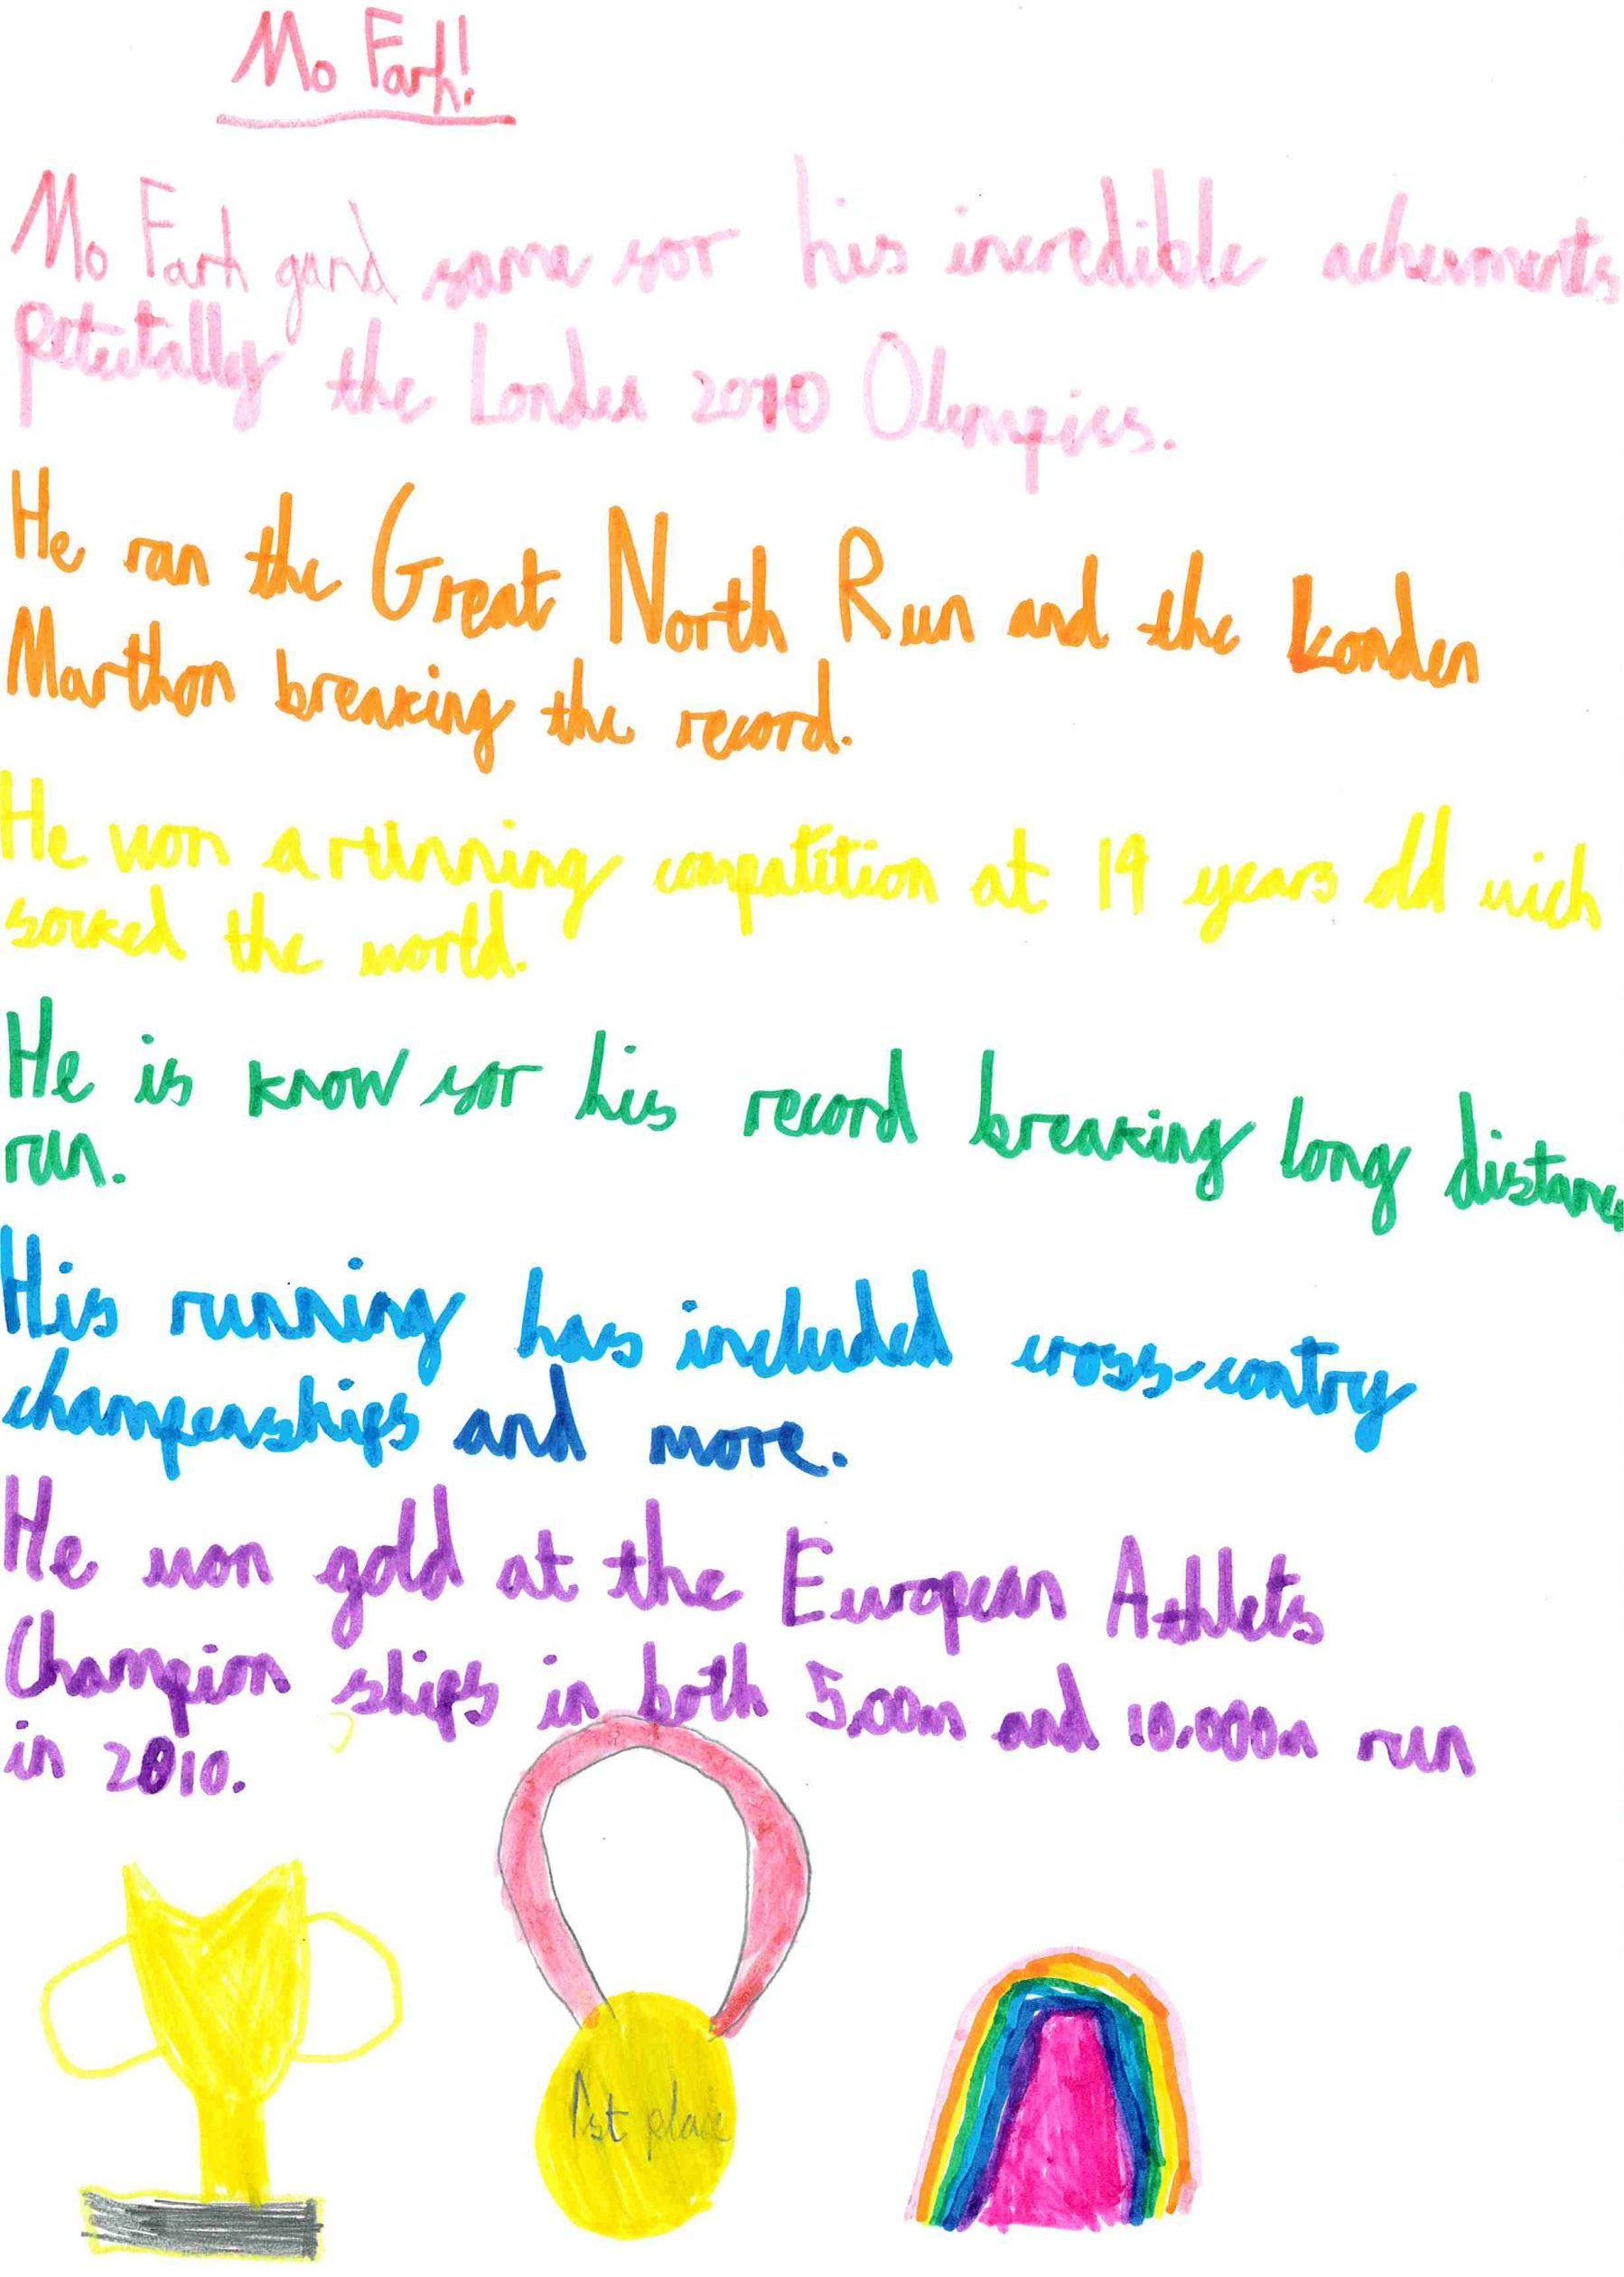 Mo Farh!
Mo Farh gand fame for his incredible acheivments
peteutally the Londen 2010 Olimpics.
He ran the Great North Run and the Londen
Marthon breaking the record.
He won a running compatition at 19 years old wich
socked the world.
He is know for his record breaking long distance
run.
His running has included cross-contry
champenships and more.
He won gold at the European Athlets
Champion ships in both 5,00m and 10,000m run
in 2010.
1st place